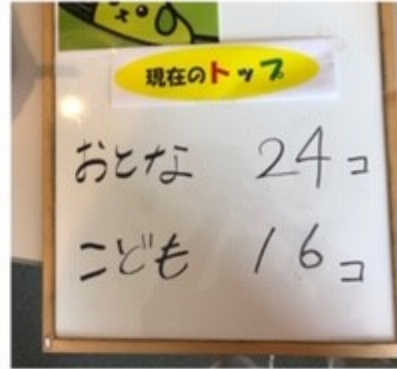 現在のトップ
おとな 24コ
こども 16コ